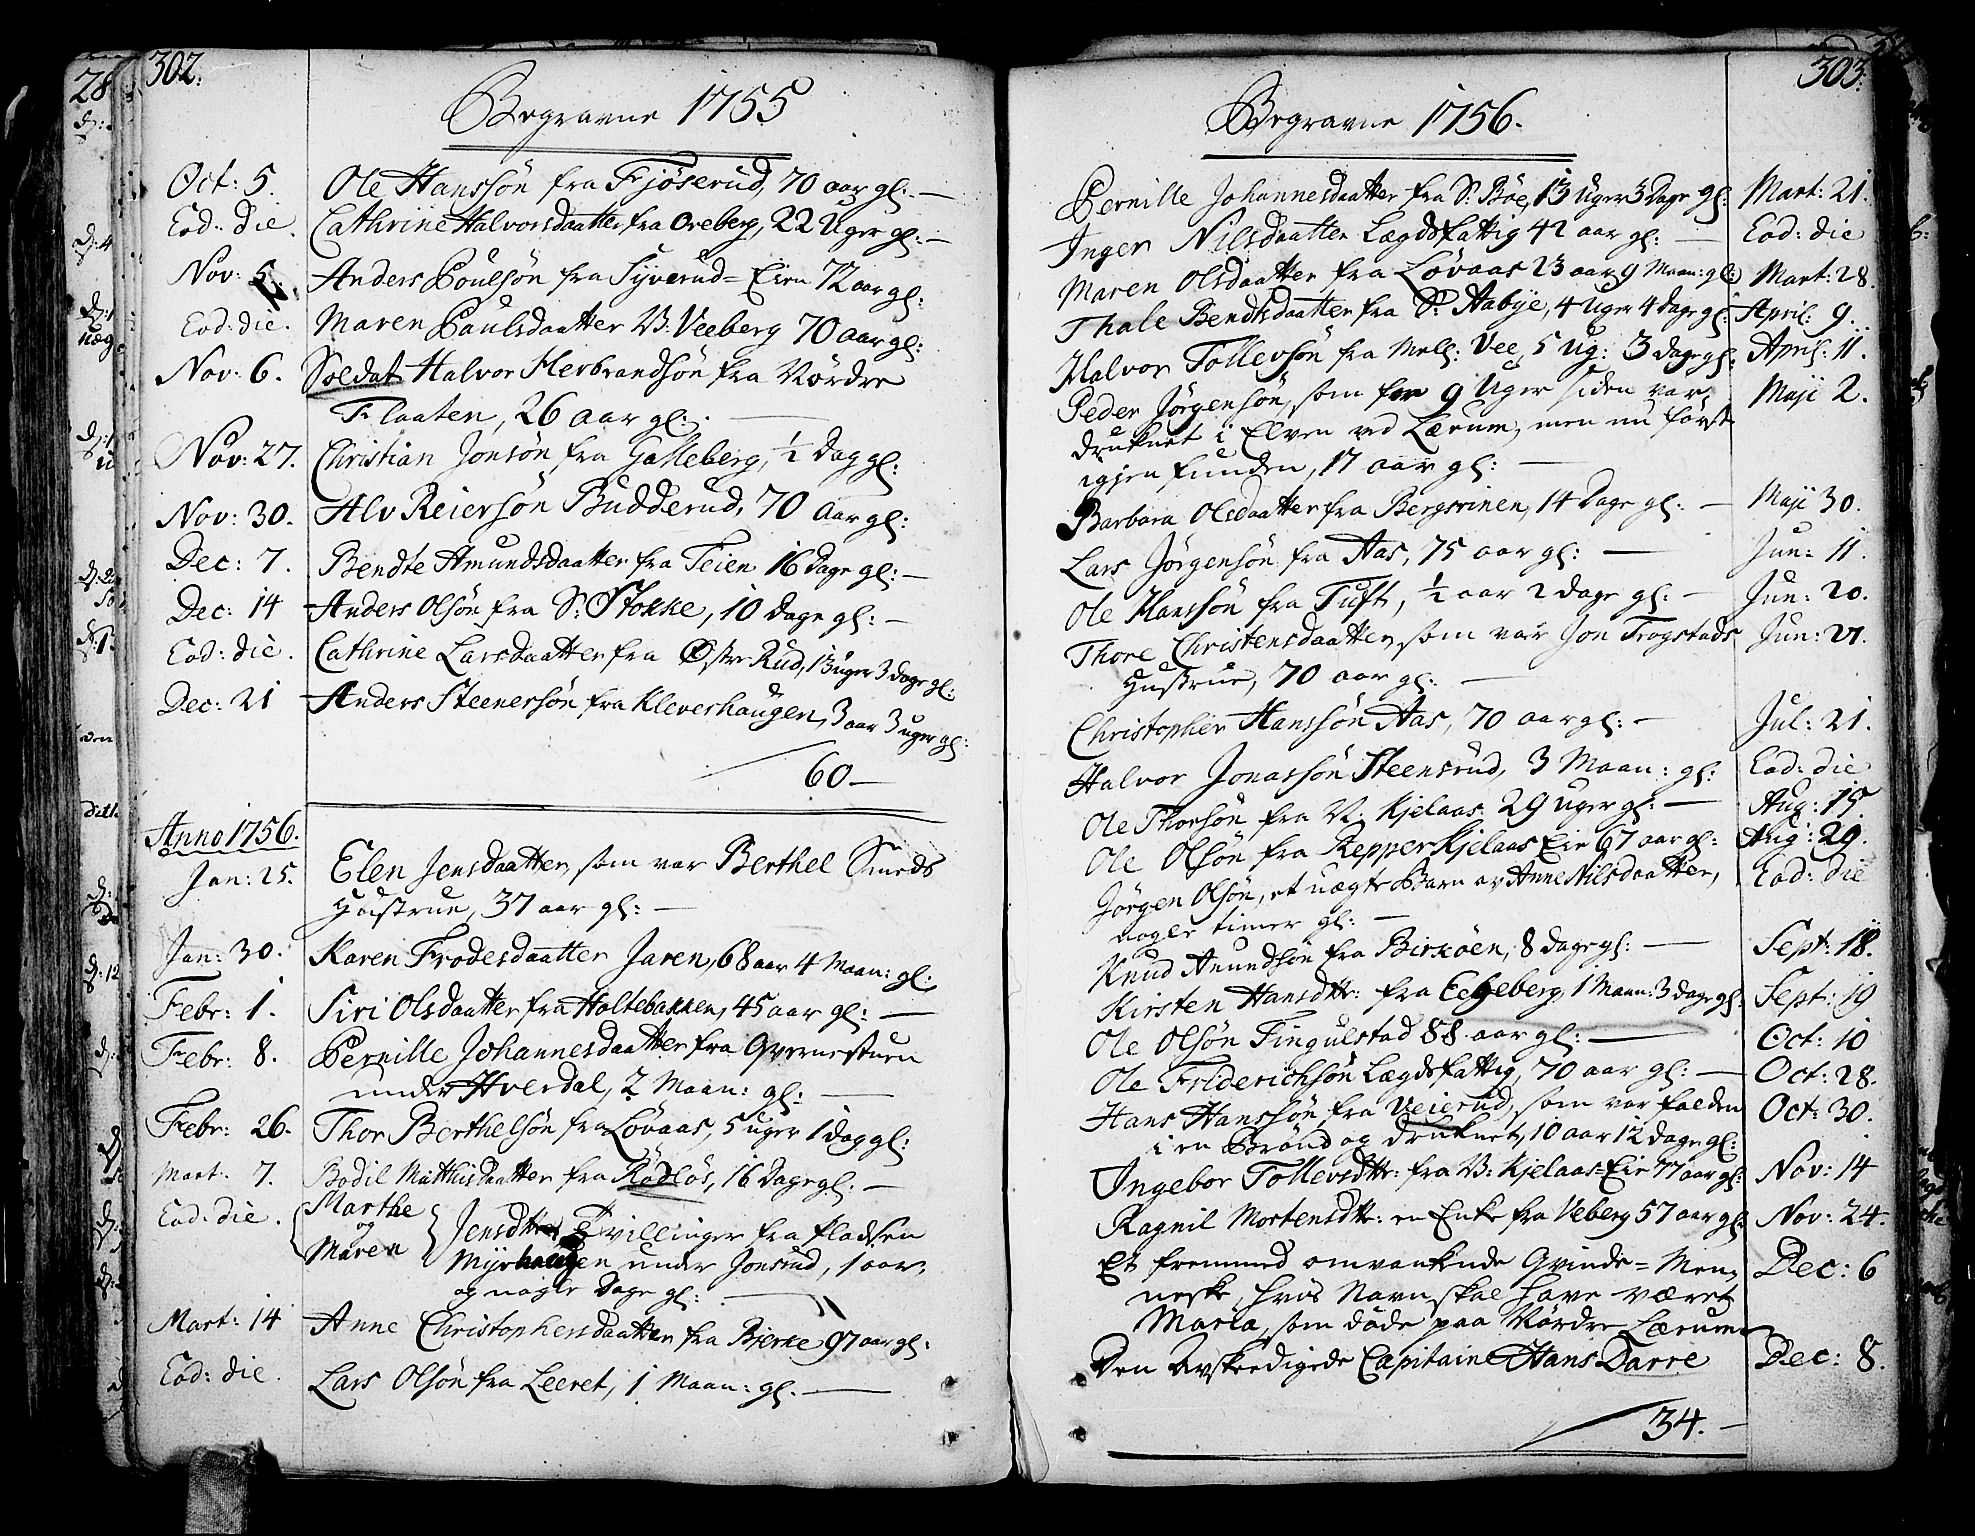 302.
Begravne 1755
Oct: 5. Ole Hanssøn fra Fjøserud, 70 aar gl: —
Eod: die. Cathrine Halvorsdaatter fra Oreberg, 22 Uger gl: —
Nov: 5. Anders Poulsøn fra Syverud=Eien 72 aar gl:
Eod: die. Maren Paulsdaatter V: Veeberg 70 aar gl:
Nov: 6. Soldat Halvor Herbrandsøn fra Nördre
Flaaten, 26 aar gl: —
Nov: 27. Christian Jonsøn fra Galleberg, ½ dag gl:
Nov: 30. Alv Reiersøn Budderud, 70 aar gl:
Dec: 7. Bendte Amundsdaatter fra Teien 16 dage gl: —
Dec: 14 Anders Olsøn fra S: Stokke, 10 dage gl: —
Eod: die. Cathrine Larsdaatter fra Østre Rud, 13 uger 3 dage gl:
Dec: 21 Anders Steenersøn fra Kleverhaugen, 3 aar 3 uger gl:
60 —
Anno 1756.
Jan: 25. Elen Jensdaatter, som var Berthel Smeds
Hustrue, 37 aar gl: —
Jan: 30. Karen Frodesdaatter Jaren, 68 aar 4 Maan: gl:
Febr: 1. Siri Olsdaatter fra Holtebakken, 45 aar gl: —
Febr: 8. Pernille Johannesdaatter fra Qvernestuen
under Hverdal, 2 Maan: gl: —
Febr: 26. Thor Berthelsøn fra Lövaas, 5 uger 1 dag gl:
Mart: 7. Bodil Matthisdaatter fra Rödlös, 16 Dage gl: —
Eod: die. Marthe
og
Maren
Jensdttr, Tvillinger fra Pladsen
Myrhaugen under Jonsrud, 1 aar,
og nogle Dage gl: —
Mart: 14 Anne Christophersdaatter fra Bjerke 97 aar gl:
Eod: die. Lars Olsøn fra Leeret, 1 Maan: gl: —
303.
Begravne 1756.
Pernille Johannesdaatter fra S: Böe, 13 Uger 3 Dage gl: Mart: 21.
Inger Nilsdaatter Lægdsfattig 42 aar gl: — Eod: die
Maren Olsdaatter fra Lövaas 23 aar 9 Maan: gl: Mart: 28.
Thale Bendtsdaatter fra S: Aabye, 4 Uger 4 dage gl: April: 9.
Halvor Tollevsøn fra Mell: Vee, 5 Ug: 3 dage gl: April: 11.
Peder Jörgensøn, som for 9 Uger siden var Maji 2.
druknet i Elven ved Lærum, men nu först
igjen funden, 17 aar gl: —
Barbara Olsdaatter fra Bergsvinen, 14 Dage gl: — Maji 30.
Lars Jörgensøn fra Aas, 75 aar gl: — Jun: 11.
Ole Hanssøn fra Tuft, ½ aar 2 dage gl: — Jun: 20.
Thore Christensdaatter, som var Jon Trogstads Jun: 21.
Hustrue, 70 aar gl: —
Christopher Hanssøn Aas, 70 aar gl: — Jul: 21.
Halvor Jonassøn Steensrud, 3 Maan: gl: Eod: die
Ole Thorsøn fra V: Kjelaas 29 uger gl: — Aug: 15.
Ole Olsøn fra Kepperkjelaas Eie 67 aar gl: Aug: 29.
Jörgen Olsøn, et uægte Barn av Anne Nilsdaatter, Eod: die
nogle timer gl: —
Knud Anundsøn fra Birköen, 8 dage gl: — Sept: 18.
Kirsten Hansdttr: fra Eegeberg, 1 Maan: 3 dage gl: Sept: 19
Ole Olsøn Fingulstad 88 aar gl: — Oct: 10
Ole Friderichsøn Lægdsfattig, 70 aar gl: — Oct: 28.
Hans Hanssøn fra Veierud, som var falden Oct: 30.
i en Brönd og druknet, 10 aar 12 dage gl:
Ingebor Tollevsdttr: fra V: Kjelaas=Eie 77 aar gl: Nov: 14
Ragnil Mortensdttr: en Enke fra Veberg 57 aar gl: Nov: 24.
Et fremmed omvankende Qvinde=Men, Dec: 6
neske, hvis Navn skal have været
Maria, som döde paa Nördre Lærum
Den Avskeedigede Capitaine Hans Darre Dec: 8.
34. —